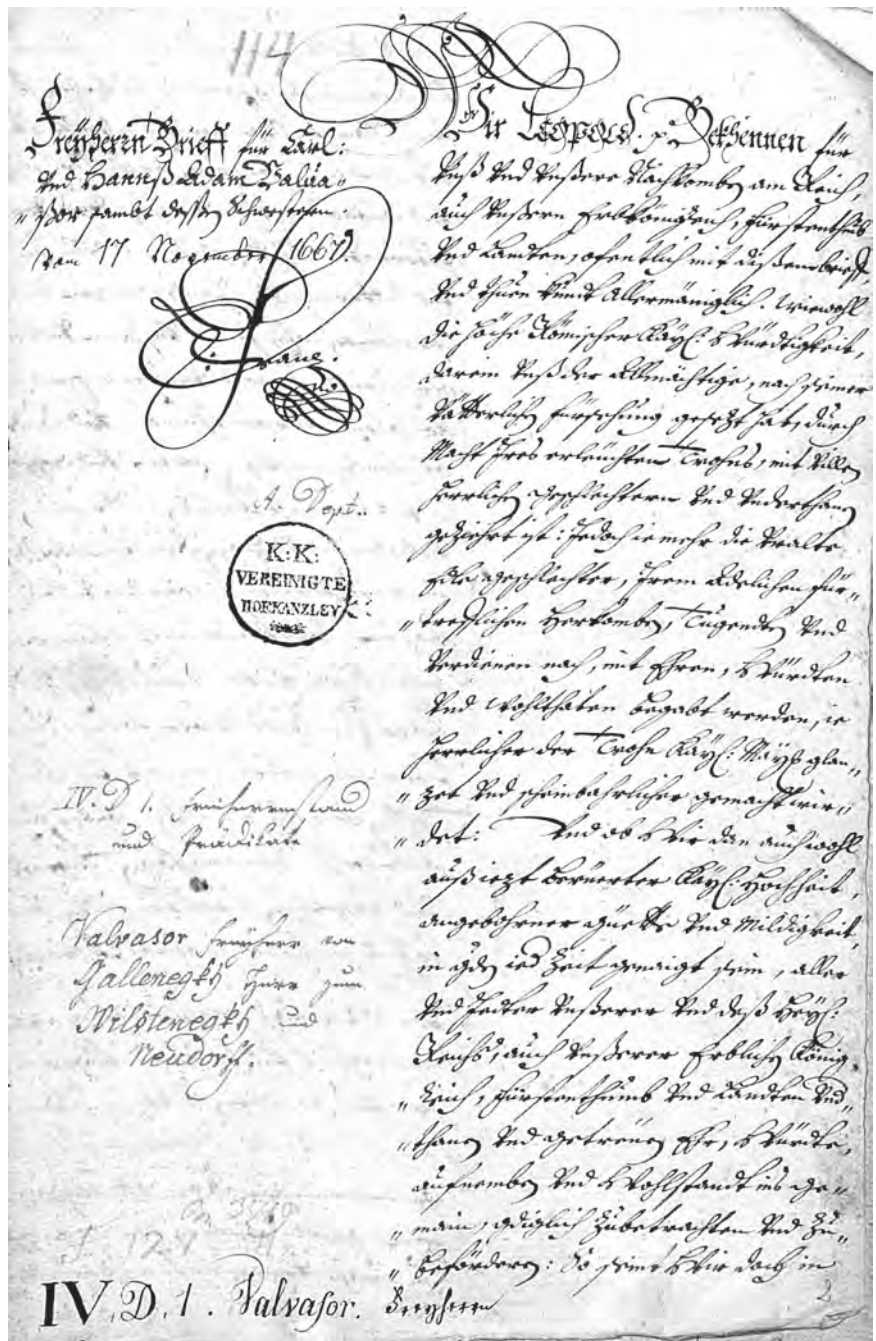 114
Freyherrn Brieff für Carl:
Vnd Hannß Adam Valua-
"ßor sambt dessen Schwestern.
Vom 17 November 1667.
A. Dept.
K: K:
VEREINIGTE
HOFKANZLEY
IV. D 1. Freiherrenstand
und Prädikate
Valvasor Freyherr von
Gallenegkh Herr zum
Wilstenegkh und
Neudorff.
IV. D. 1. Valvasor.
Wir Leopold. p. Bekhennen für
Vnß Vnd Vnßere Nachkomben am Reich,
auch Vnßern Erbkönigreich, Fürstenthumb
Vnd Landten, ofentlich mit dißem brieff,
Vnd thuen kundt Allermäniglich. Wiewohl
die höche Römischer Kayl: Würdtigkeit,
darein Vnß der Allmächtige, nach seiner
Vätterlichen fürsehung gesezt hat, durch
Macht Ihres erleuchten Trohns, mit Villen
herrlichen geschlechtern Vnd Vnderthanen
geziehrt ist: Jedoch ie mehr die Vralte
Edle geschlechter, Ihrem Adelichen für-
"trefflichen Herkomben, Tugendten Vnd
Verdienen nach, mit Ehren, Würdten
Vnd wohlthaten begabt werden, ie
herrlicher der Trohn Kayl: Mayt: glan-
"zet Vnd scheinbahrlicher gemacht wir-
"det: Vnd ob Wir dan auch wohl
auß iezt berüerter Kayl: Hochheit,
angebohrner güette Vnd Mildigkeit,
in gden ied Zeit genaigt sein, aller
Vnd Jedter Vnßerer Vnd deß Heyl:
Reichs, auch Vnßerer Erblichen König-
"reich, Fürstenthumb Vnd Landten Vnd-
"thanen Vnd getreuen Ehr, Würdte,
aufnemben Vnd Wohlstandt ins ge-
"main, gdiglich Zubetrachten Vnd Zu-
"befördern: So seint Wir doch in
Freyherrn
2